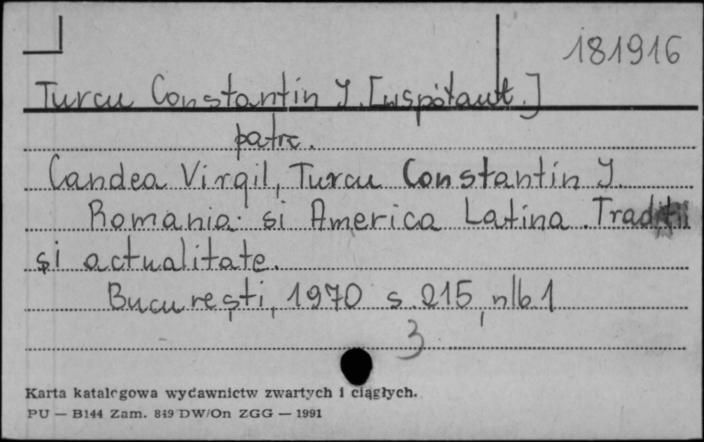 181916
Turcu Constantin I. [współaut.]
patrz.
Candea Virgil, Turcu Constantin I.
Romania si America Latina. Tradiții
și actualitate.
București, 1970 s. 215, nlb 1
3
Karta katalogowa wydawnictw zwartych i ciągłych.
PU — B144 Zam. 849 DW/On ZGG — 1991